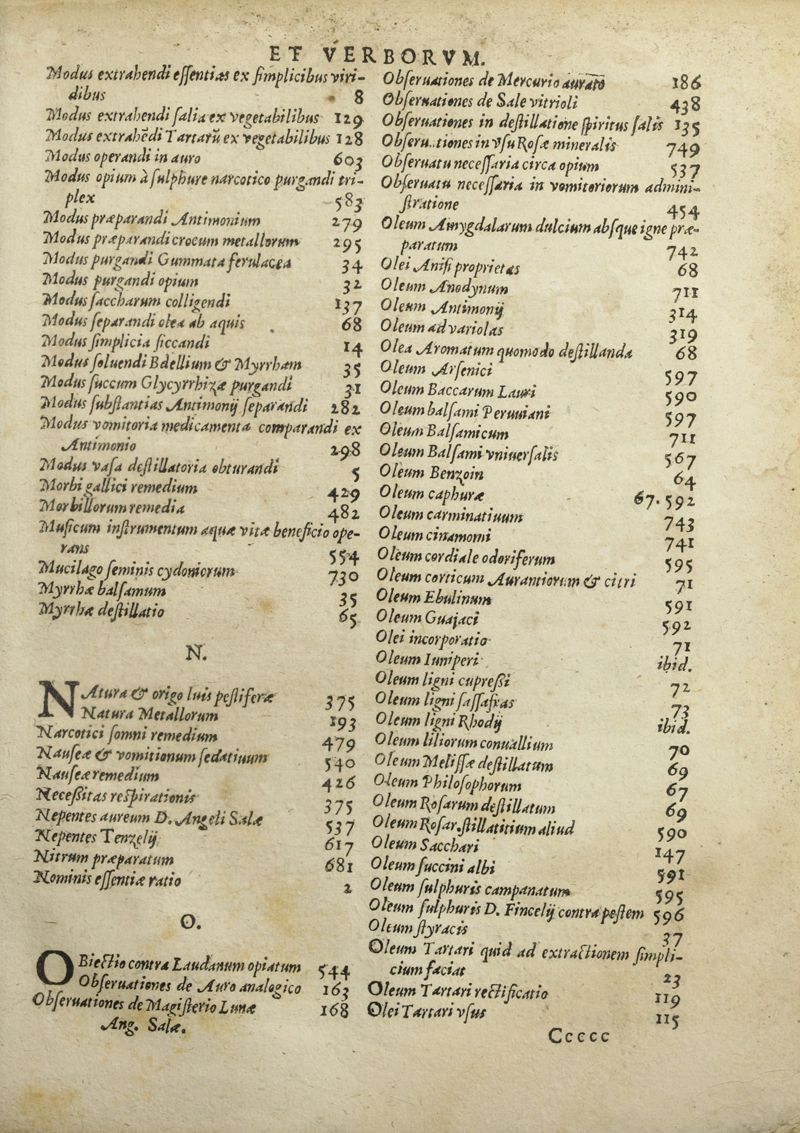 ET VERBORVM.
Modus extrahendi essentias ex simplicibus viri-
dibus 8
Modus extrahendi salia ex vegetabilibus 129
Modus extrahēdi Tartarū ex vegetabilibus 128
Modus operandi in auro 603
Modus opium à sulphure narcotico purgandi tri-
plex 583
Modus præparandi Antimonium 279
Modus præparandi crocum metallorum 295
Modus purgandi Gummata ferulacea 34
Modus purgandi opium 32
Modus saccharum colligendi 137
Modus separandi olea ab aquis 68
Modus simplicia siccandi 14
Modus soluendi Bdellium & Myrrham 35
Modus succum Glycyrrhizæ purgandi 31
Modus substantias Antimonij separandi 282
Modus vomitoria medicamenta comparandi ex
Antimonio 298
Modus vasa destillatoria obturandi 5
Morbi gallici remedium 429
Morbillorum remedia 482
Musicum instrumentum aquæ vitæ beneficio ope-
rans 554
Mucilago seminis cydoniorum 730
Myrrhæ balsamum 35
Myrrhæ destillatio 65
N.
NAtura & origo luis pestiferæ 375
Natura Metallorum 193
Narcotici somni remedium 479
Nauseæ & vomitionum sedatiuum 540
Nauseæ remedium 426
Necessitas respirationis 375
Nepentes aureum D. Angeli Salæ 537
Nepentes Tenzelij 617
Nitrum præparatum 681
Nominis essentiæ ratio 2
O.
OBiectio contra Laudanum opiatum 544
Obseruationes de Auro analogico 163
Obseruationes de Magisterio Lunæ 168
Ang. Salæ.
Obseruationes de Mercurio aurato 186
Obseruationes de Sale vitrioli 438
Obseruationes in destillatione spiritus salis 135
Obseru..tiones in vsu Rosæ mineralis 749
Obseruatu necessaria circa opium 537
Obseruatu necessaria in vomitoriorum admini-
stratione 454
Oleum Amygdalarum dulcium absque igne præ-
paratum 742
Olei Anisi proprietas 68
Oleum Anodynum 711
Oleum Antimonij 314
Oleum ad variolas 319
Olea Aromatum quomodo destillanda 68
Oleum Arsenici 597
Oleum Baccarum Lauri 590
Oleum balsami Peruuiani 597
Oleum Balsamicum 711
Oleum Balsami vniuersalis 567
Oleum Benzoin 64
Oleum caphuræ 67. 592
Oleum carminatiuum 743
Oleum cinamomi 741
Oleum cordiale odoriferum 595
Oleum corticum Aurantiorum & citri 71
Oleum Ebulinum 591
Oleum Guajaci 592
Olei incorporatio 71
Oleum Iuniperi ibid.
Oleum ligni cupressi 72
Oleum ligni sassafras 73
Oleum ligni Rhodij ibid.
Oleum liliorum conuallium 70
Oleum Melissæ destillatum 69
Oleum Philosophorum 67
Oleum Rosarum destillatum 69
Oleum Rosar. stillatitium aliud 590
Oleum Sacchari 147
Oleum succini albi 591
Oleum sulphuris campanatum 595
Oleum sulphuris D. Fincelij contra pestem 596
Oleum styracis 37
Oleum Tartari quid ad extractionem simpli-
cium faciat 23
Oleum Tartari rectificatio 119
Olei Tartari vsus 115
Ccccc